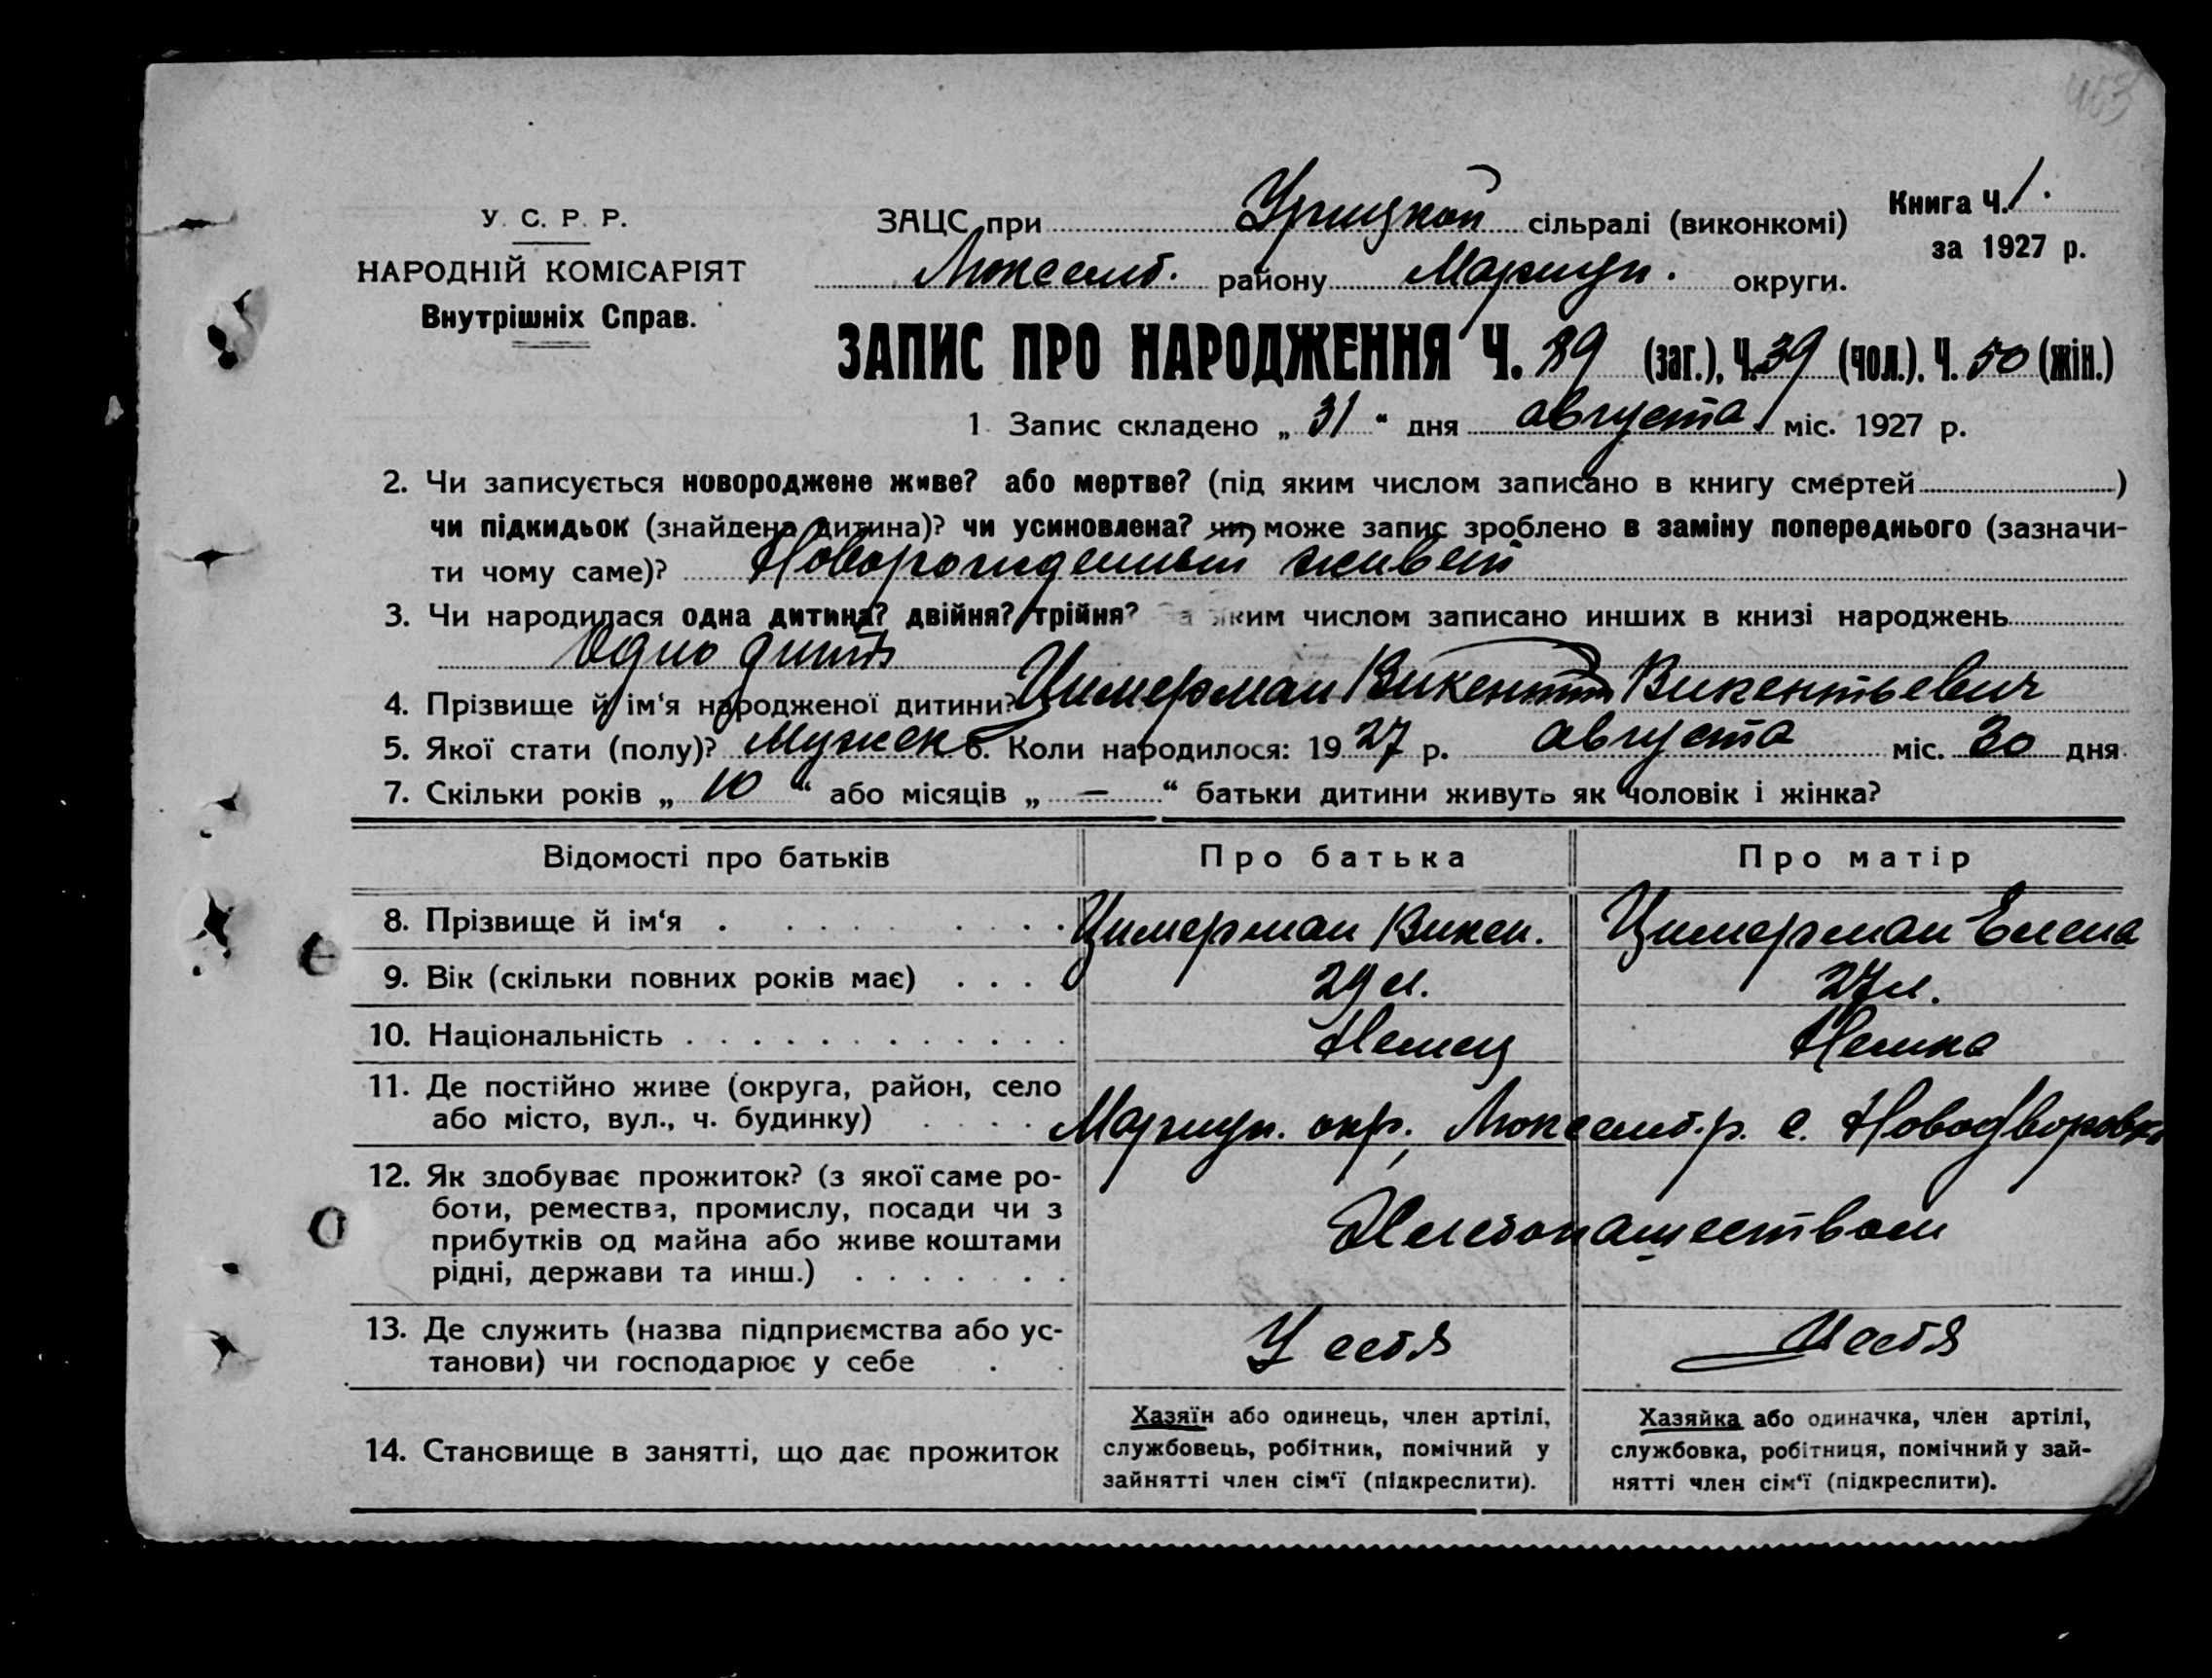 403
У. С. Р. Р.
НАРОДНІЙ КОМІСАРІЯТ
Внутрішніх Справ.
ЗАЦС при Урицкой сільраді (виконкомі)
Люксемб. району Мариуп. округи.
Книга Ч. 1.
за 1927 р.
ЗАПИС ПРО НАРОДЖЕННЯ Ч. 89 (заг.), Ч. 39 (чол.). Ч. 50 (жін.)
1. Запис складено „ 31 “ дня августа міс. 1927 р.
2. Чи записується новороджене живе? або мертве? (під яким числом записано в книгу смертей )
чи підкидьок (знайдена дитина)? чи усиновлена? чи може запис зроблено в заміну попереднього (зазначи-
ти чому саме)? Новорожденный живет
3. Чи народилася одна дитина? двійня? трійня? яким числом записано инших в книзі народжень
Одно дитя
4. Прізвище й ім‘я народженої дитини? Цимерман Викентий Викентьевич
5. Якої стати (полу)? Мужск 6. Коли народилося: 1927 р. августа міс. 30 дня
7. Скільки років „ 10 “ або місяців „ — “ батьки дитини живуть як чоловік і жінка?
Відомості про батьків Про батька Про матір
8. Прізвище й ім‘я Цимерман Викен. Цимерман Елена
9. Вік (скільки повних років має) 29 л. 27 л.
10. Національність Немец Немка
11. Де постійно живе (округа, район, село
або місто, вул., ч. будинку) Мариуп. окр., Люксемб. р. с. Новодворовка
12. Як здобуває прожиток? (з якої саме ро-
боти, ремества, промислу, посади чи з
прибутків од майна або живе коштами
рідні, держави та инш.) Хлебопашеством
13. Де служить (назва підприємства або ус-
танови) чи господарює у себе У себя У себя
14. Становище в занятті, що дає прожиток
Хазяїн або одинець, член артілі,
службовець, робітник, помічний у
зайнятті член сім‘ї (підкреслити).
Хазяйка або одиначка, член артілі,
службовка, робітниця, помічний у зай-
нятті член сім‘ї (підкреслити).